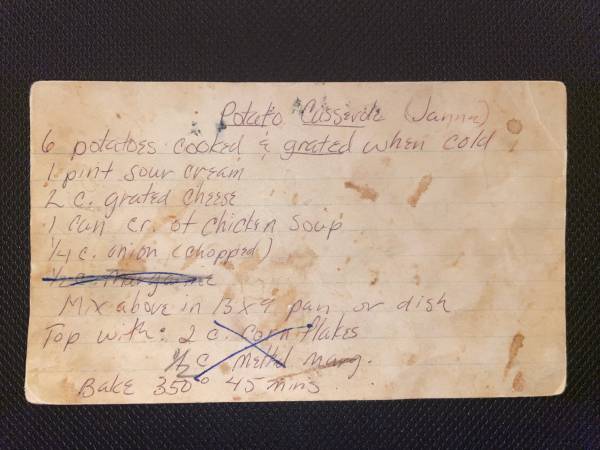 Potato Casserole (Janna)
6 potatoes cooked & grated when cold
1 pint sour cream
2 c. grated cheese
1 can cr. of chicken soup
1/4 c. onion (chopped)
1/2 c. margarine
Mix above in 13 x 9 pan or dish
Top with: 2 c. corn flakes
1/2 c melted marg.
Bake 350° 45 mins